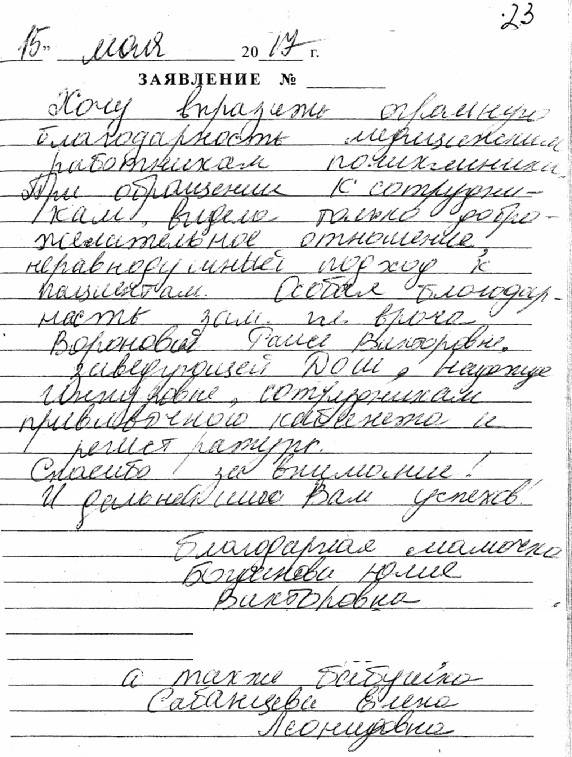 23
15" мая 2017 г.
ЗАЯВЛЕНИЕ №
Хочу выразить огромную
благодарность медицинским
работникам поликлиники.
При обращении к сотрудни-
кам, видела только добро-
желательное отношение,
неравнодушный подход к
пациентам. Особая благодар-
ность зам. гл. врача
Вороновой Раисе Викторовне,
заведующей ДОШ, Надежде
сотрудникам
прививочного кабинета и
регистратуры.
Спасибо за внимание!
И дальнейших Вам успехов!
Благодарная мамочка
Богданова Юлия
Викторовна
а также бабушка
Сабанцева Елена
Леонидовна